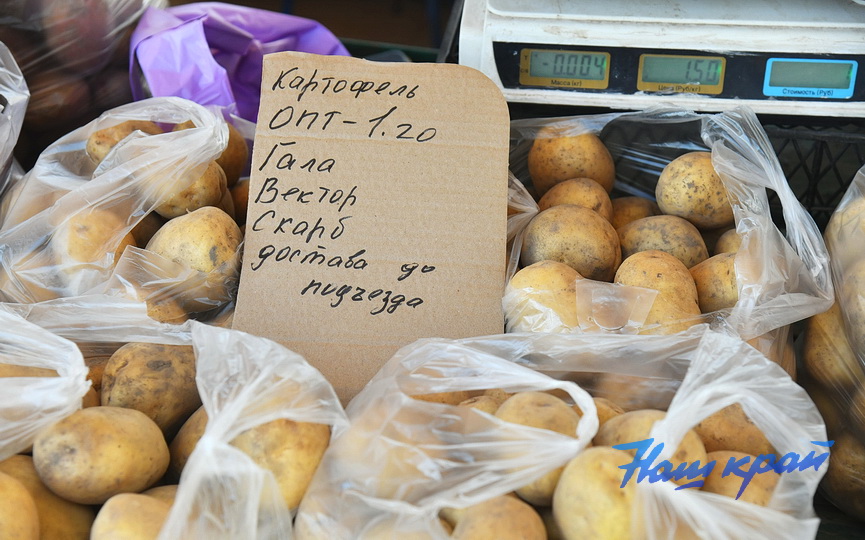 Картофель
ОПТ-1.20
Гала
Вектор
Скарб
достава до
подъезда
-0.004
1.50
Масса (кг)
Цена (Руб/кг)
Стоимость (Руб)
Наш край